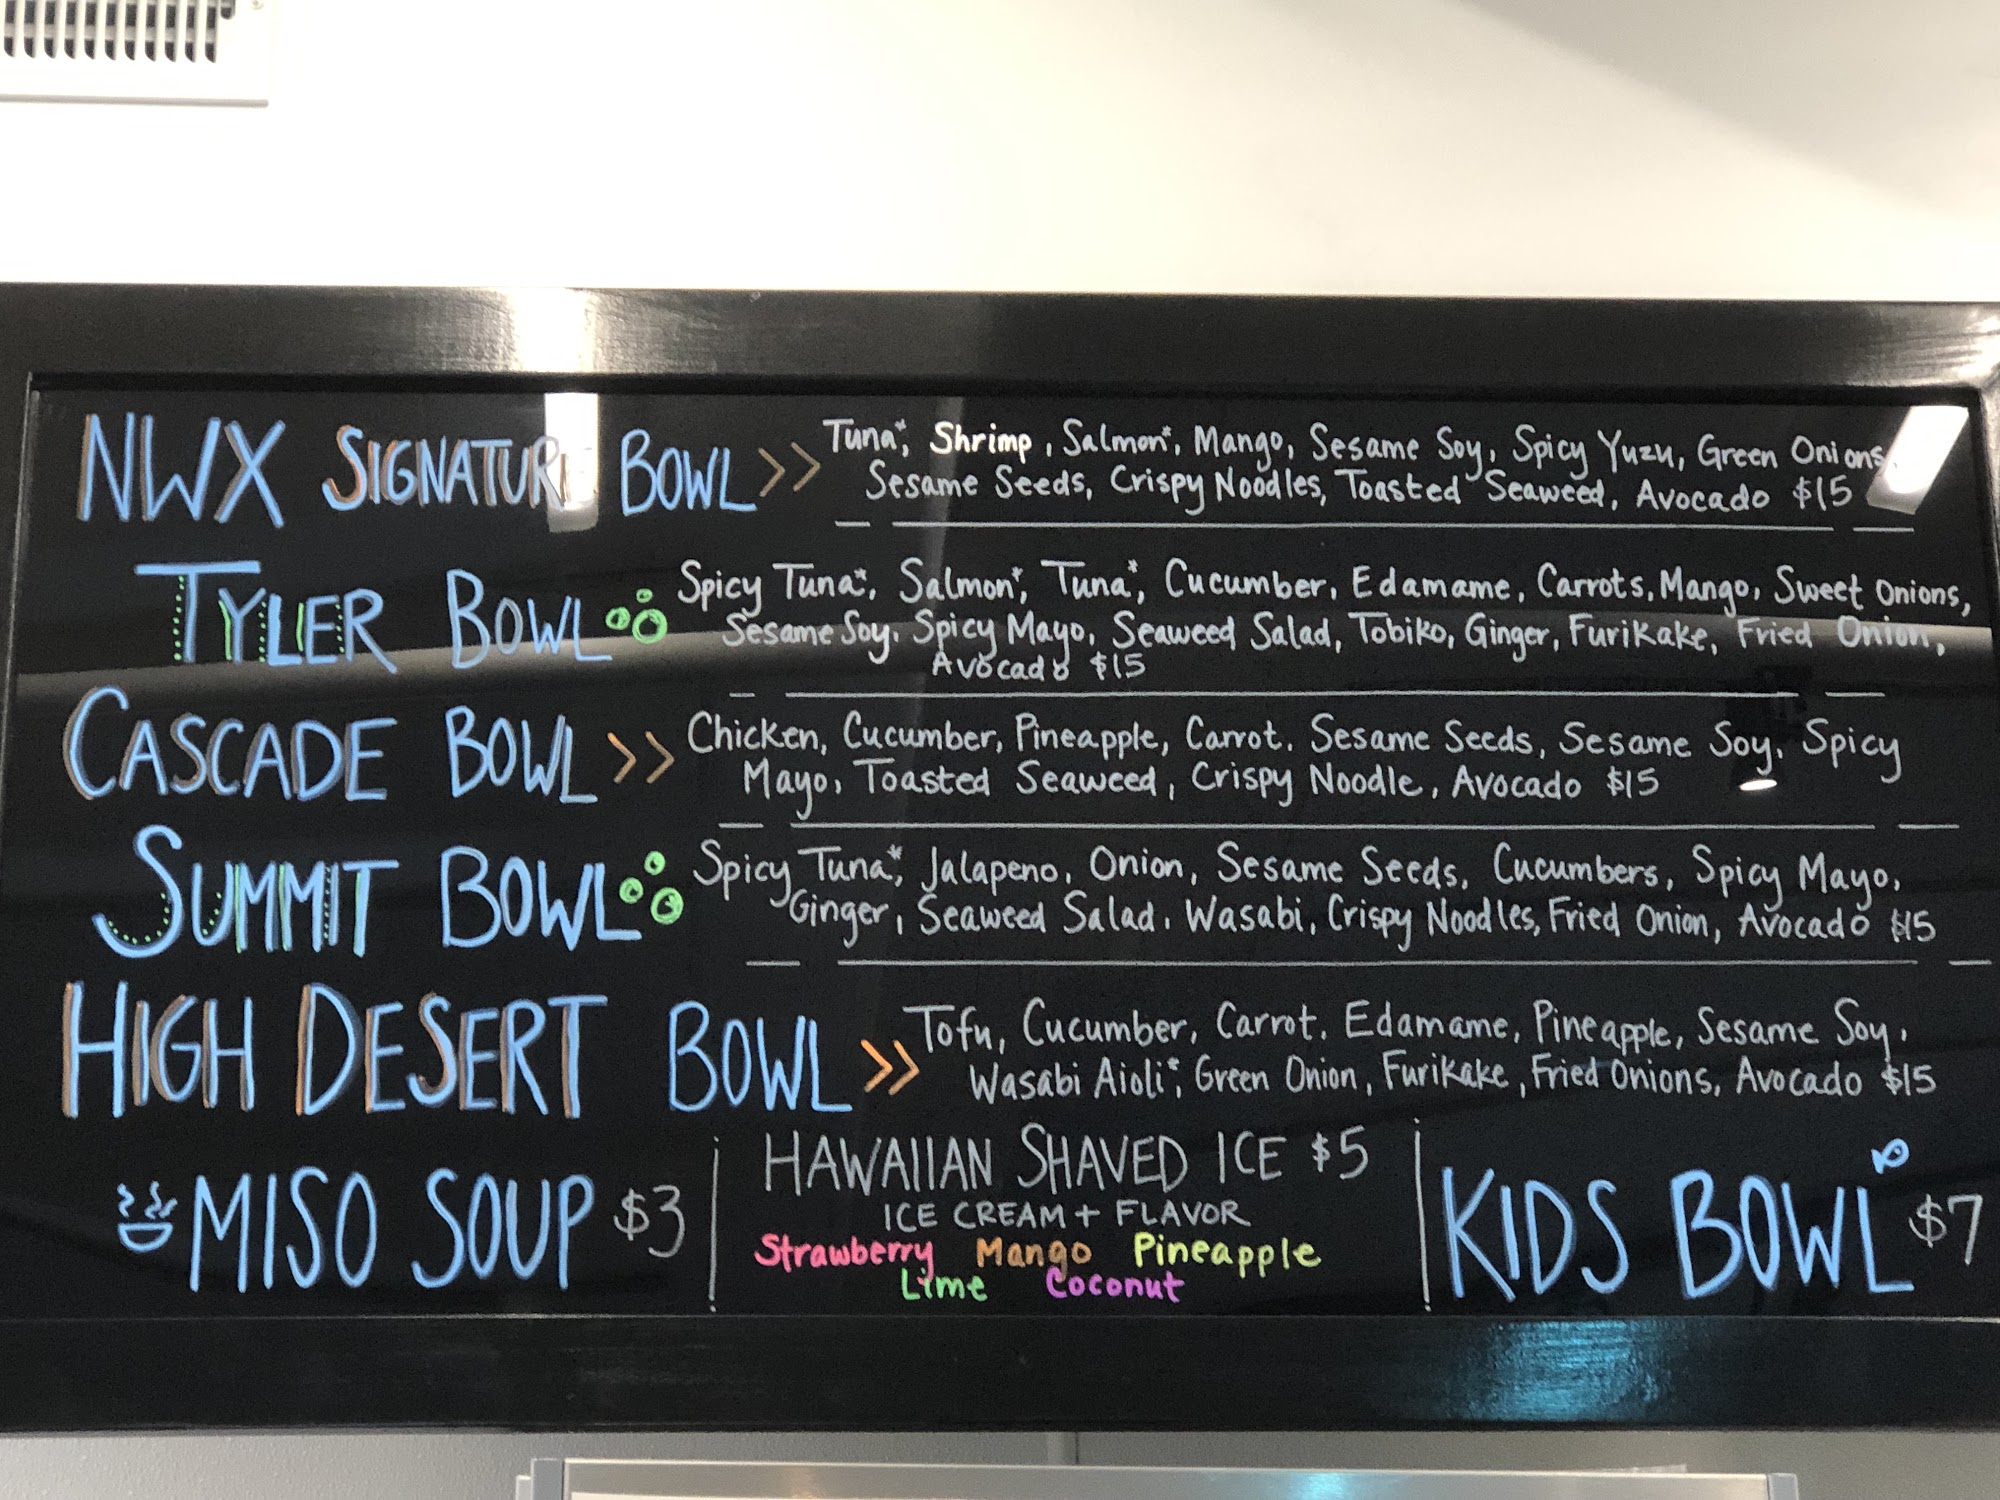 NWX SIGNATURE BOWL >> Tuna*, Shrimp, Salmon*, Mango, Sesame Soy, Spicy Yuzu, Green Onions
Sesame Seeds, Crispy Noodles, Toasted Seaweed, Avocado $15
TYLER BOWL Spicy Tuna*, Salmon*, Tuna*, Cucumber, Edamame, Carrots, Mango, Sweet Onions,
Sesame Soy, Spicy Mayo, Seaweed Salad, Tobiko, Ginger, Furikake, Fried Onion,
Avocado $15
CASCADE BOWL >> Chicken, Cucumber, Pineapple, Carrot, Sesame Seeds, Sesame Soy, Spicy
Mayo, Toasted Seaweed, Crispy Noodle, Avocado $15
SUMMIT BOWL Spicy Tuna*, Jalapeno, Onion, Sesame Seeds, Cucumbers, Spicy Mayo,
Ginger, Seaweed Salad, Wasabi, Crispy Noodles, Fried Onion, Avocado $15
HIGH DESERT BOWL >> Tofu, Cucumber, Carrot, Edamame, Pineapple, Sesame Soy,
Wasabi Aioli*, Green Onion, Furikake, Fried Onions, Avocado $15
MISO SOUP $3
HAWAIIAN SHAVED ICE $5
ICE CREAM + FLAVOR
Strawberry Mango Pineapple
Lime Coconut
KIDS BOWL $7